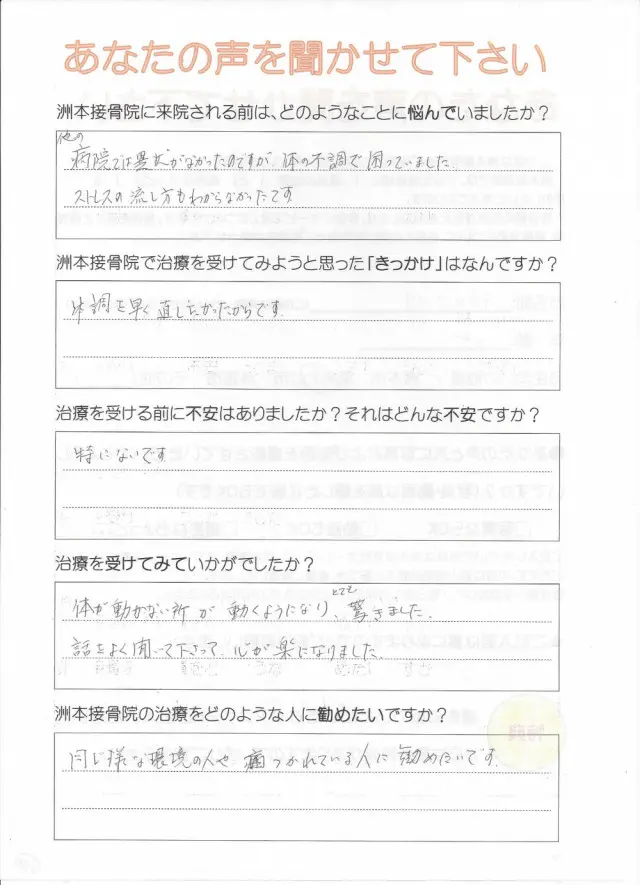 あなたの声を聞かせて下さい
洲本接骨院に来院される前は、どのようなことに悩んでいましたか？
他の
病院では異状がなかったのですが、体の不調で困っていました。
ストレスの流し方もわからなかったです
洲本接骨院で治療を受けてみようと思った「きっかけ」はなんですか？
体調を早く直したかったからです。
治療を受ける前に不安はありましたか？それはどんな不安ですか？
特にないです
治療を受けてみていかがでしたか？
とても
体が動かない所が動くようになり、驚きました。
話をよく聞いて下さって、心が楽になりました。
洲本接骨院の治療をどのような人に勧めたいですか？
同じ様な環境の人や つかれている人に勧めたいです。